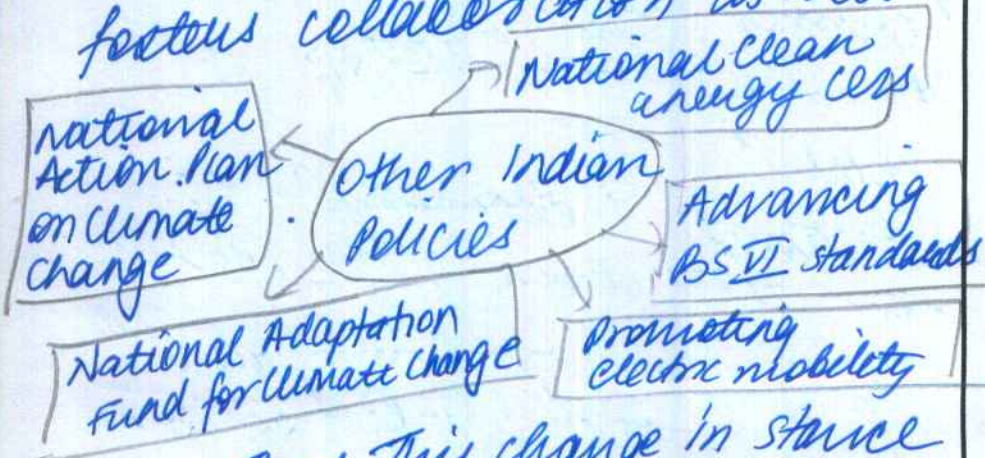 fosters collaboration as
National Clean
energy Cess
National
Action Plan
on Climate
Change
Other Indian
Policies
Advancing
BS VI standards
National Adaptation
Fund for Climate Change
Promoting
electric mobility
This change in stance